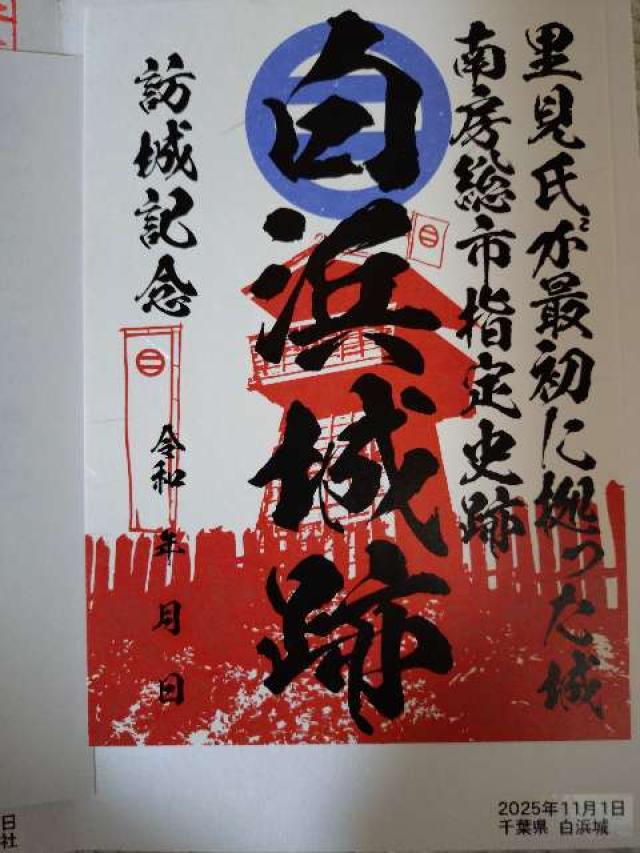 里見氏が最初に拠った城
南房総市指定史跡
白浜城跡
訪城記念
令和 年 月 日
2025年11月1日
千葉県 白浜城
日
社